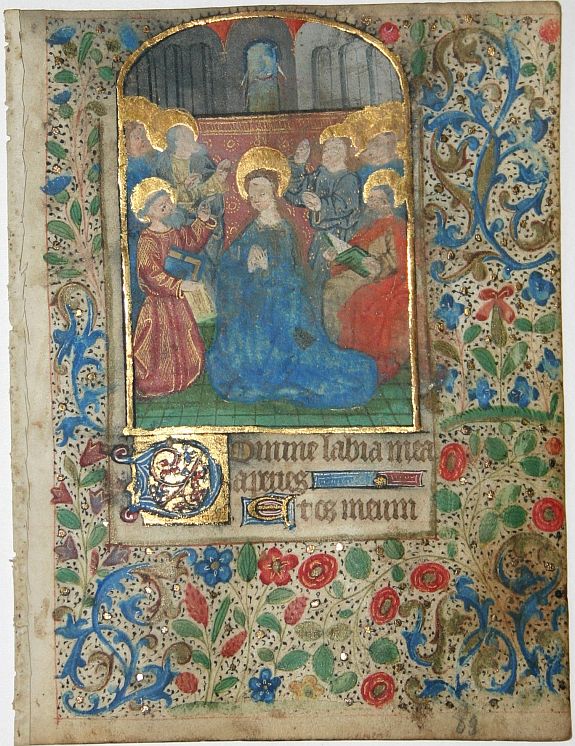 Domine labia mea
aperies
Et os meum
89